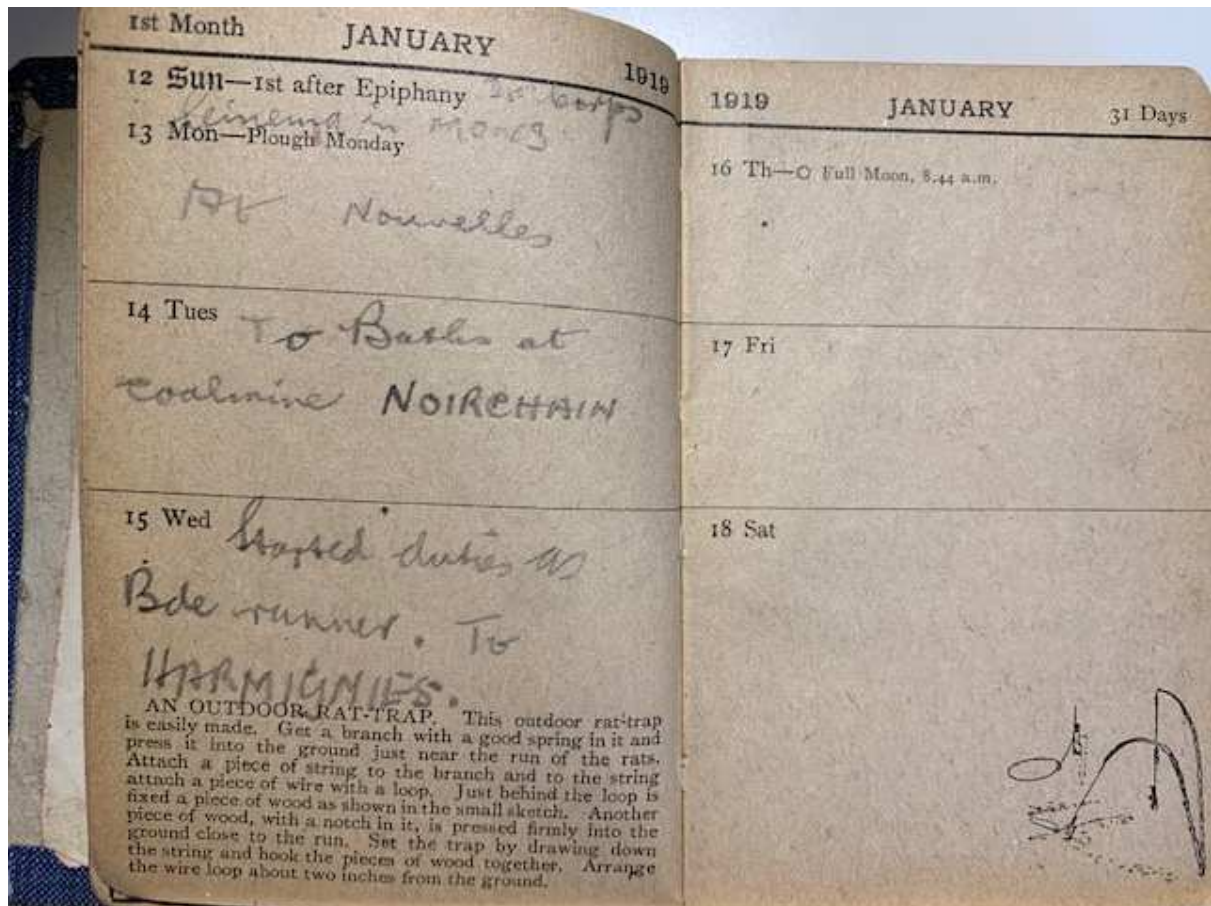 1st Month JANUARY 1919
12 Sun—1st after Epiphany To Corps
Cinema in Mons
13 Mon—Plough Monday
At Nouvelles
14 Tues To Baths at
coalmine NOIRCHAIN
15 Wed Started duties as
Bde runner. To
HARMIGNIES.
AN OUTDOOR RAT-TRAP. This outdoor rat-trap
is easily made. Get a branch with a good spring in it and
press it into the ground just near the run of the rats.
Attach a piece of string to the branch and to the string
attach a piece of wire with a loop. Just behind the loop is
fixed a piece of wood as shown in the small sketch. Another
piece of wood, with a notch in it, is pressed firmly into the
ground close to the run. Set the trap by drawing down
the string and hook the pieces of wood together. Arrange
the wire loop about two inches from the ground.
1919 JANUARY 31 Days
16 Th—O Full Moon, 8.44 a.m.
17 Fri
18 Sat